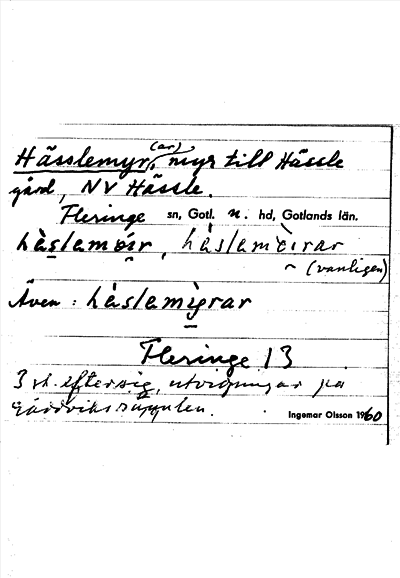 Hässlemyr(ar), myr till Hässle
gård, NV Hässle.
Fleringe sn, Gotl. n. hd, Gotlands län.
hàslamöir, hàslamöirar
~ (vanligen)
Även: hàslamỳrar
Fleringe 13
3 st. efter vig, utvidgningar på
Ingemar Olsson 1960